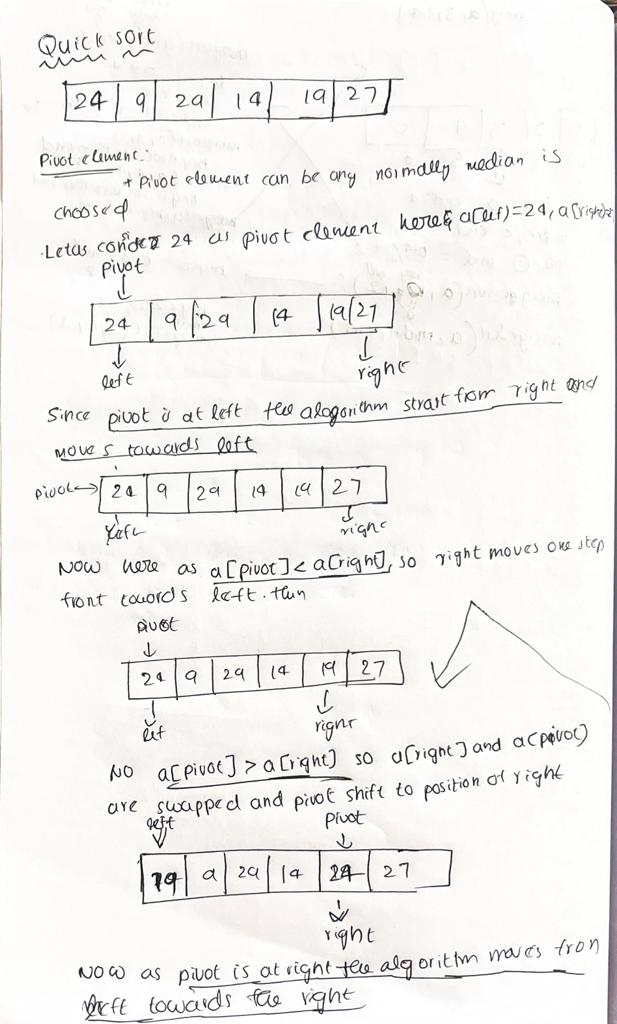 Quick sort
24 9 29 14 19 27
Pivot element:
+ Pivot element can be any normally median is
choosed
. Let us consider 24 as pivot element here a(left)=24, a(right)=
pivot
24 9 29 14 19 27
left right
Since pivot is at left the alogorithm strart from right and
moves towards left
pivot→ 24 9 29 14 19 27
left right
Now here as a[pivot] < a[right], so right moves one step
front towords left. then
pivot
24 9 29 14 19 27
left right
No a[pivot] > a[right] so a[right] and a(pivot)
are swapped and pivot shift to position of right
left pivot
19 9 29 14 24 27
right
Now as pivot is at right the algorithm moves fron
left towards the right